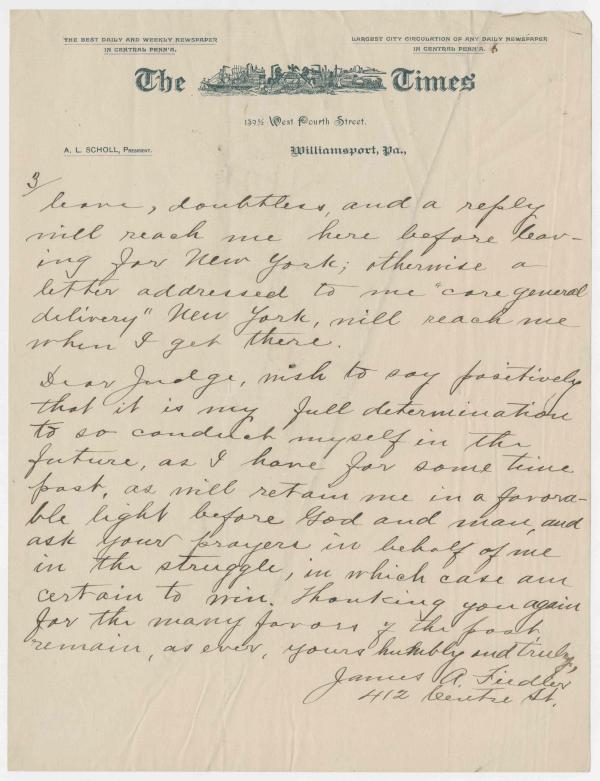 THE BEST DAILY AND WEEKLY NEWSPAPER
IN CENTRAL PENN'A.
LARGEST CITY CIRCULATION OF ANY DAILY NEWSPAPER
IN CENTRAL PENN'A.
The Times
139½ West Fourth Street.
A. L. SCHOLL, PRESIDENT.
Williamsport, Pa.,
3/
leave, doubtless, and a reply
will reach me here before leav-
ing for New York; otherwise a
letter addressed to me "care general
delivery" New York, will reach me
when I get there.
Dear Judge, wish to say positively
that it is my full determination
to so conduct myself in the
future, as I have for some time
past, as will retain me in a favora-
ble light before God and man, and
ask your prayers in behalf of me
in the struggle, in which case am
certain to win. Thanking you again
for the many favors of the past
remain, as ever, yours humbly and truly,
James A. Fiedler
412 Centre St.